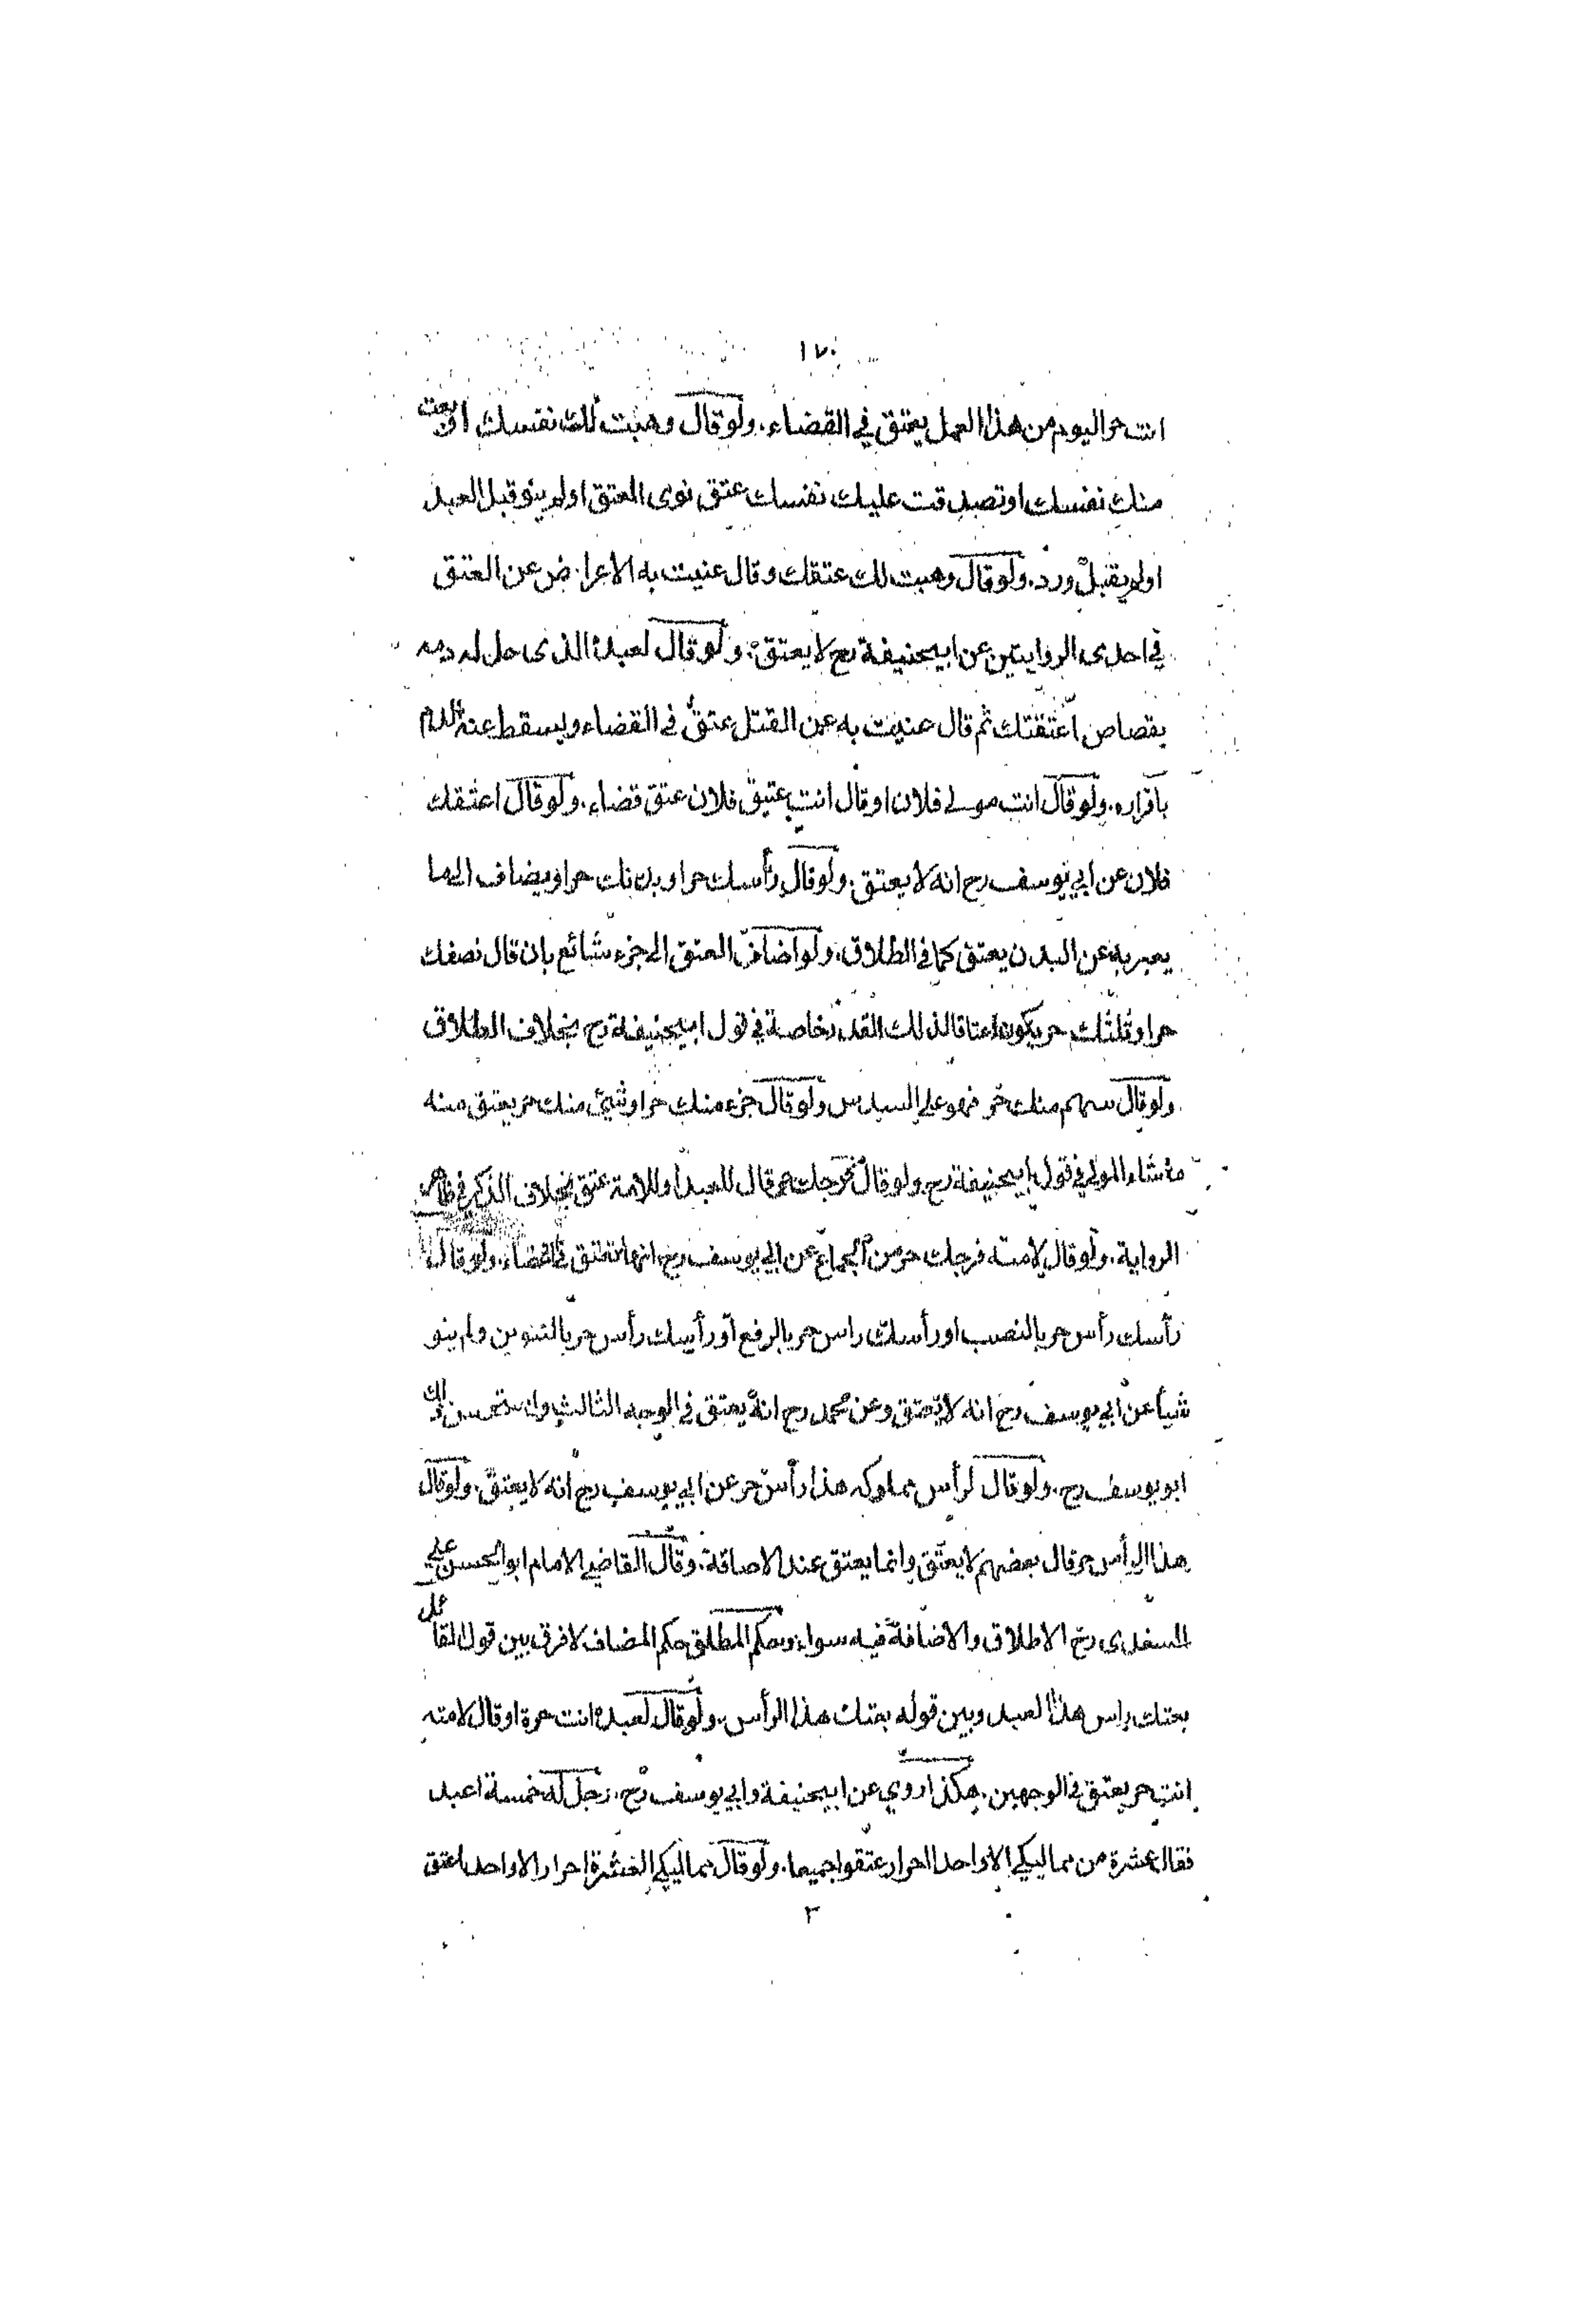 ١٧٠
انت حر اليوم من هذا العمل يعتق في القضاء. ولو قال وهبت لك نفسك او بعت
منك نفسك او تصدقت عليك نفسك عتق نوى العتق او لم ينو قبل العبد
او لم يقبل ورد. ولو قال وهبت لك عتقك وقال عنيت به الاعراض عن العتق
في احدى الروايتين عن ابيحنيفة رح لا يعتق. ولو قال لعبده الذى حل له دمه
بقصاص اعتقتك ثم قال عنيت به عن القتل عتق في القضاء ويسقط عنه الدم
باقراره. ولو قال انت مولى فلان او قال انت عتيق فلان عتق قضاء. ولو قال اعتقك
فلان عن ابي يوسف رح انه لا يعتق. ولو قال رأسك حر او بدنك حر او يضاف الى ما
يعبر به عن البدن يعتق كما في الطلاق. ولو اضاف العتق الى جزء شائع بان قال نصفك
حر او ثلثك حر يكون اعتاقا لذلك القدر خاصة في قول ابيحنيفة رح بخلاف الطلاق
ولو قال سهم منك حر فهو على السدس ولو قال جزء منك حر او شيئ منك حر يعتق منه
ما شاء المولى في قول ابيحنيفة رح. ولو قال فرجك حر قال للعبد او للامة عتق بخلاف الذكر في ظاهر
الرواية. ولو قال لامته فرجك حر من الجماع عن ابي يوسف رح انها تعتق في القضاء. ولو قال
رأسك رأس حر بالنصب او رأسك راس حر بالرفع او رأسك رأس حر بالتنوين ولم ينو
شيأ عن ابي يوسف رح انه لا يعتق وعن محمد رح انه يعتق في الوجه الثالث واستحسن ذلك
ابو يوسف رح. ولو قال لرأس مملوكه هذا رأس حر عن ابي يوسف رح انه لا يعتق. ولو قال
هذا الرأس حر قال بعضهم لا يعتق وانما يعتق عند الاضافة. وقال القاضي الامام ابو الحسن علي
السغدى رح الاطلاق والاضافة فيه سواء وحكم المطلق حكم المضاف لا فرق بين قول القائل
بعتك راس هذا العبد وبين قوله بعتك هذا الرأس. ولو قال لعبده انت حرة او قال لامته
انت حر يعتق في الوجهين. هكذا روي عن ابيحنيفة وابي يوسف رح. رجل له خمسة اعبد
فقال عشرة من مماليكي الا واحدا احرار عتقوا جميعا. ولو قال مماليكي العشرة احرار الا واحدا عتق
٣